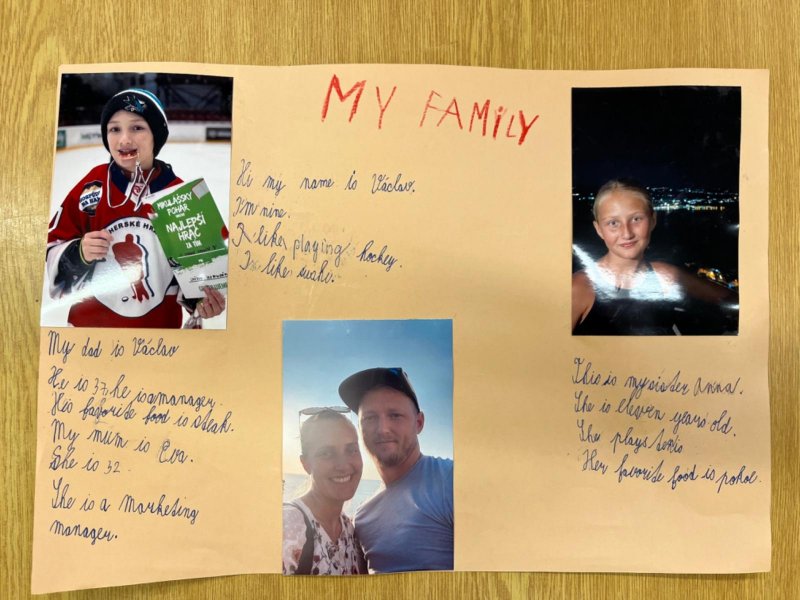 MY FAMILY
Hi my name is Václav.
I'm nine.
I like playing hockey.
I like sushi.
MIKULÁŠSKÝ
POHÁR
NAJLEPŠÍ
HRÁČ
ZA TÍM
HERSKÉ HR
My dad is Václav
He is 37, he is a manager.
His favorite food is steak.
My mum is Eva.
She is 32.
She is a Marketing
manager.
This is my sister Anna.
She is eleven years old.
She plays tenis
Her favorite food is pokoe.